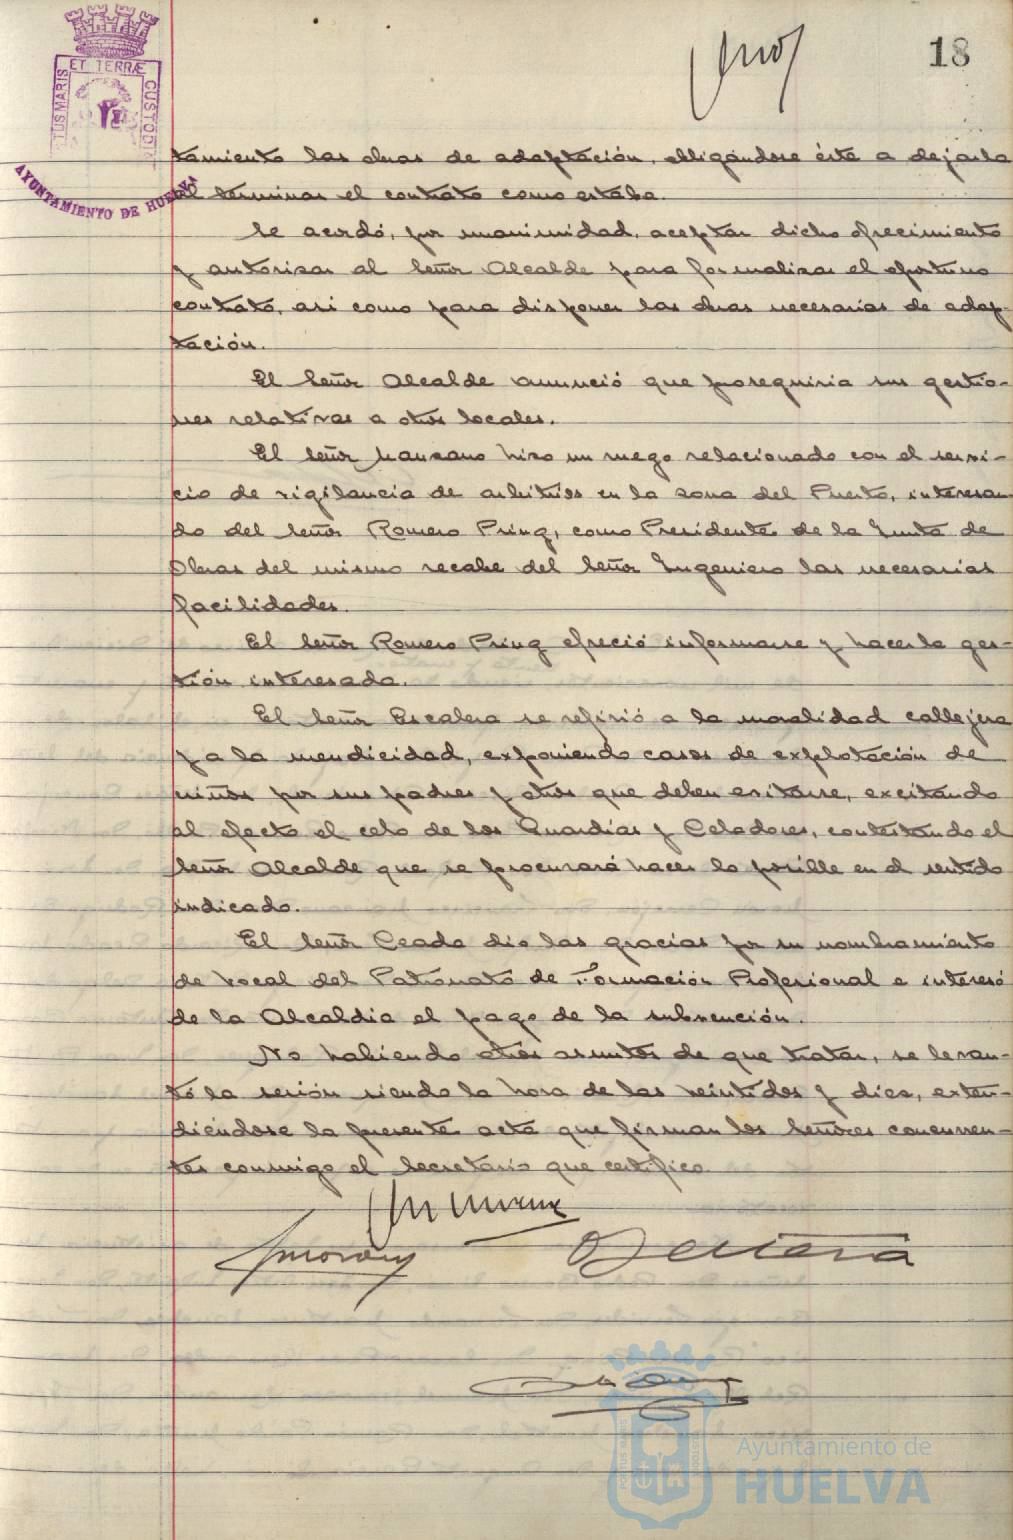 18
ET TERRÆ
TUS MARIS
CUSTODI
AYUNTAMIENTO DE HUELVA
tamiento las obras de adaptación, obligándose éste a dejarla
al terminar el contrato como estaba.
Se acordó, por unanimidad, aceptar dicho ofrecimiento
y autorizar al Señor Alcalde para formalizar el oportuno
contrato, asi como para disponer las obras necesarias de adap-
tación.
El Señor Alcalde anunció que proseguiria sus gestio-
nes relativas a otros locales.
El Señor Manzano hizo un ruego relacionado con el servi-
cio de vigilancia de arbitrios en la zona del Puerto, interesan-
do del Señor Romero Pring, como Presidente de la Junta de
Obras del mismo recabe del Señor Ingeniero las necesarias
facilidades.
El Señor Romero Pring ofreció informarse y hacer la ges-
tión interesada.
El Señor Escalera se refirió a la moralidad callejera
y a la mendicidad, exponiendo casos de explotación de
niños por sus padres y otros que deben evitarse, excitando
al efecto el celo de los Guardias y Celadores, contestando el
Señor Alcalde que se procurará hacer lo posible en el sentido
indicado.
El Señor Ceada dio las gracias por su nombramiento
de vocal del Patronato de Formación Profesional e interesó
de la Alcaldia el pago de la subvención.
No habiendo otros asuntos de que tratar, se levan-
tó la sesión siendo la hora de las veintidos y diez, exten-
diéndose la presente acta que firman los Señores concurren-
tes conmigo el Secretario que certifico.
Ayuntamiento de
HUELVA